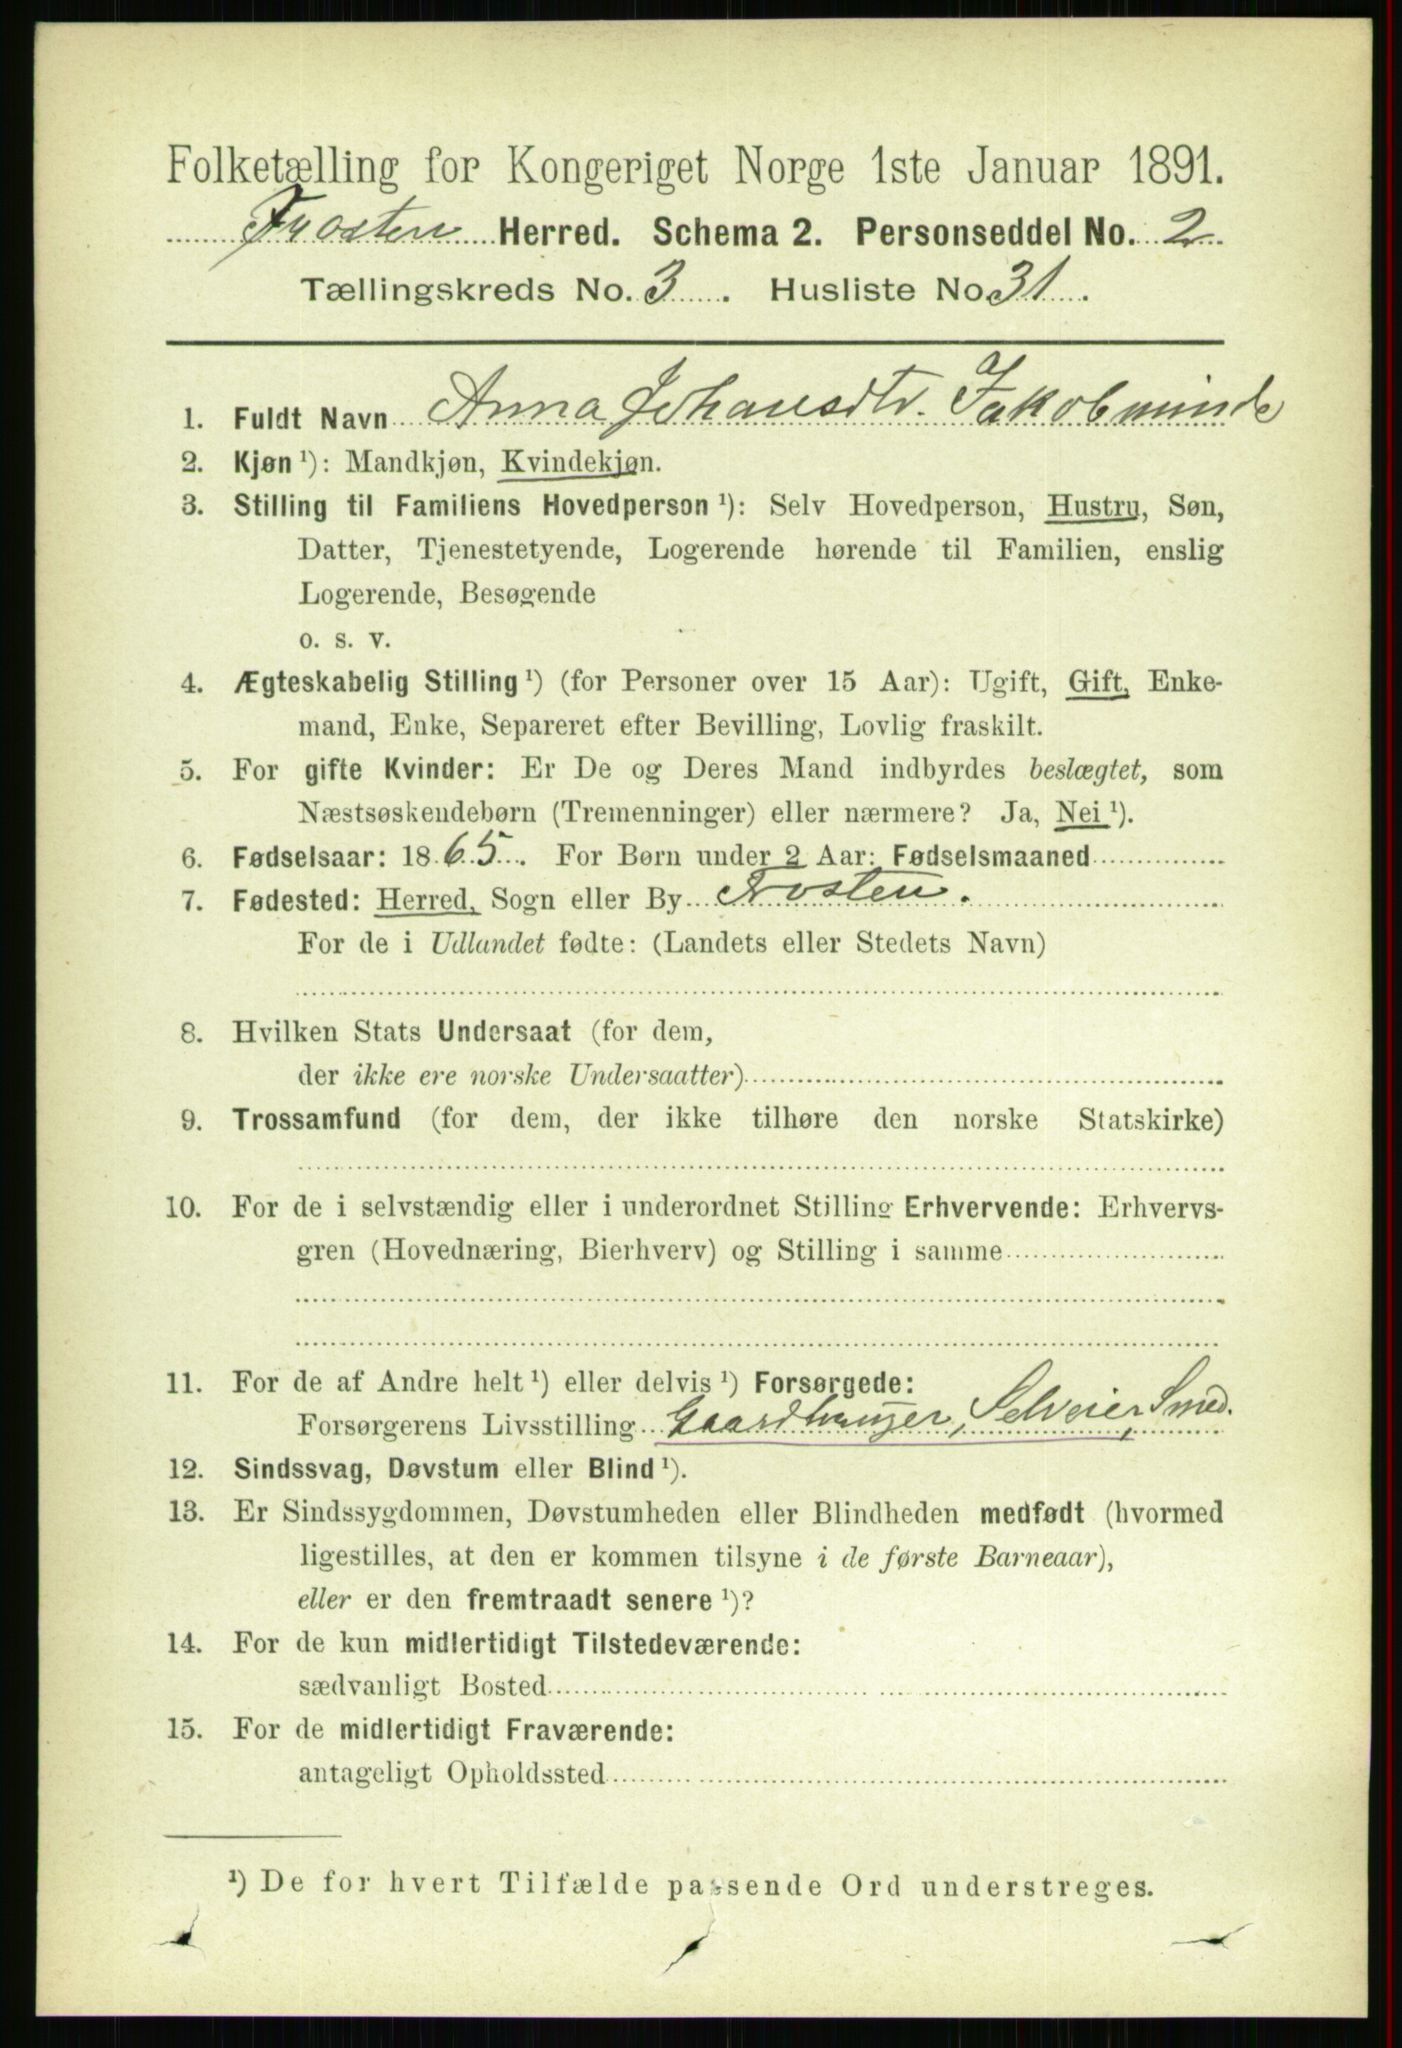 Folketælling for Kongeriget Norge 1ste Januar 1891.
Frosten Herred. Schema 2. Personseddel No. 2
Tællingskreds No. 3. Husliste No. 31.
1. Fuldt Navn Anna Johansdtr. Jakobminde
2. Kjøn ¹): Mandkjøn, Kvindekjøn.
3. Stilling til Familiens Hovedperson ¹): Selv Hovedperson, Hustru, Søn,
Datter, Tjenestetyende, Logerende hørende til Familien, enslig
Logerende, Besøgende
o. s. v.
4. Ægteskabelig Stilling ¹) (for Personer over 15 Aar): Ugift, Gift, Enke-
mand, Enke, Separeret efter Bevilling, Lovlig fraskilt.
5. For gifte Kvinder: Er De og Deres Mand indbyrdes beslægtet, som
Næstsøskendebørn (Tremenninger) eller nærmere? Ja, Nei ¹).
6. Fødselsaar: 1865. For Børn under 2 Aar: Fødselsmaaned
7. Fødested: Herred, Sogn eller By Frosten.
For de i Udlandet fødte: (Landets eller Stedets Navn)
8. Hvilken Stats Undersaat (for dem,
der ikke ere norske Undersaatter)
9. Trossamfund (for dem, der ikke tilhøre den norske Statskirke)
10. For de i selvstændig eller i underordnet Stilling Erhvervende: Erhvervs-
gren (Hovednæring, Bierhverv) og Stilling i samme
11. For de af Andre helt ¹) eller delvis ¹) Forsørgede:
Forsørgerens Livsstilling Gaardbruger, Selveier, Smed.
12. Sindssvag, Døvstum eller Blind ¹).
13. Er Sindssygdommen, Døvstumheden eller Blindheden medfødt (hvormed
ligestilles, at den er kommen tilsyne i de første Barneaar),
eller er den fremtraadt senere ¹)?
14. For de kun midlertidigt Tilstedeværende:
sædvanligt Bosted
15. For de midlertidigt Fraværende:
antageligt Opholdssted
¹) De for hvert Tilfælde passende Ord understreges.